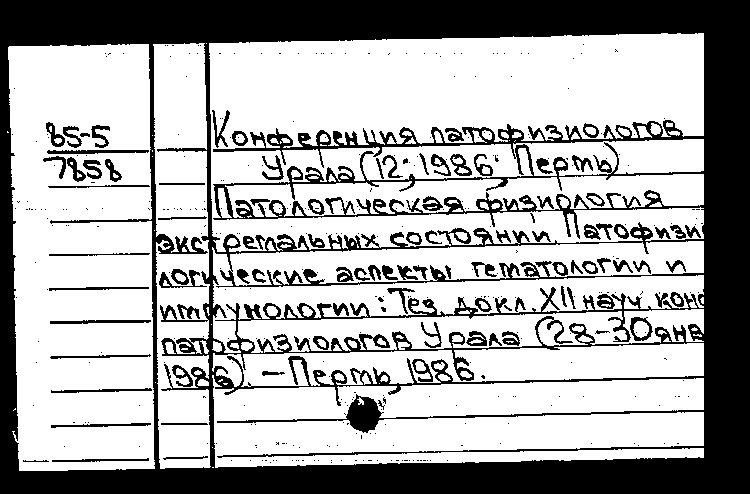 85-5
7858
Конференция патофизиологов
Урала (12; 1986; Пермь)
Патологическая физиология
экстремальных состояний. Патофизи
логические аспекты гематологии и
иммунологии: Тез. докл. XII науч. кон
патофизиологов Урала (28-30 янв
1986). - Пермь, 1986.